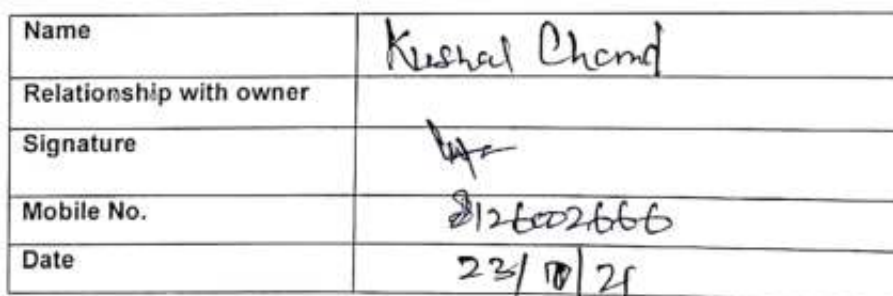 Name Kushal Chand
Relationship with owner
Signature
Mobile No. 8126002666
Date 23/ /21